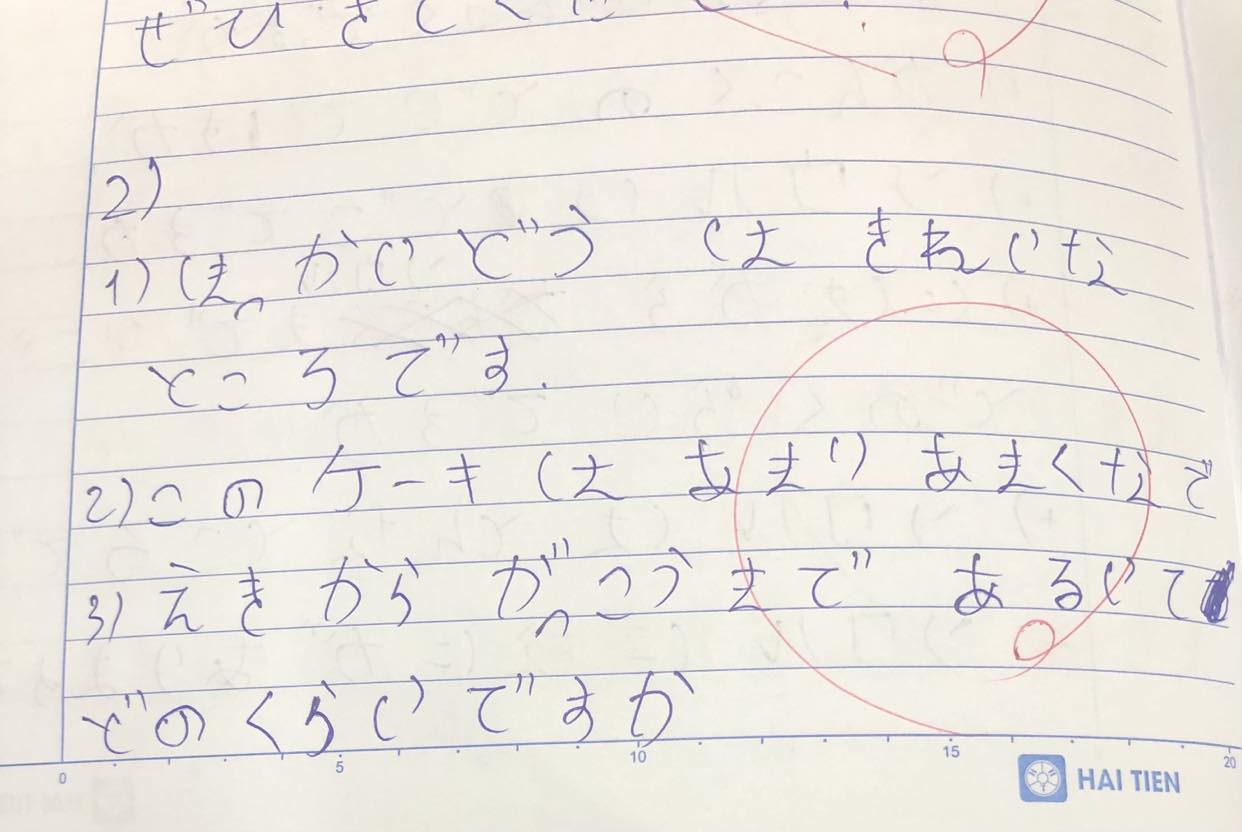 ぜひ きてくだ
2)
1) ほっかいどう は きれいな
ところです.
2) この ケーキ は あまり あまくなで
3) えき から がっこう まで あるいて
どのくらいですか
0 5 10 15 20
HAI TIEN